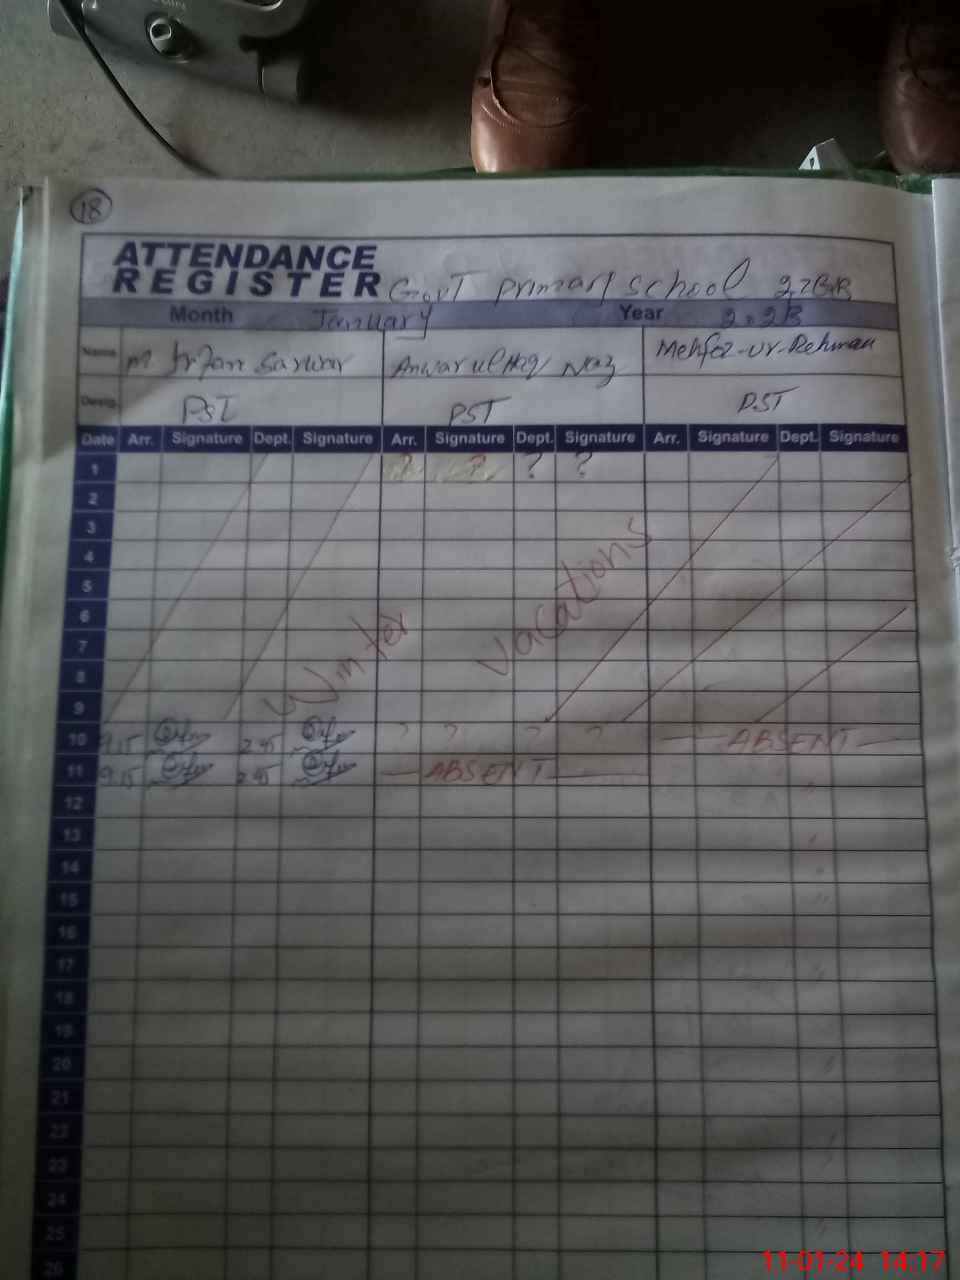 18
ATTENDANCE
REGISTER Govt primary school
Month January Year 2023
Name M Irfan Sarwar Anwar ul Haq Naz Mehfoz-ur-Rehman
Desig. PST PST PST
Date Arr. Signature Dept. Signature Arr. Signature Dept. Signature Arr. Signature Dept. Signature
1 ? ? ? ?
2
3
4
5
6
7
8
9
Winter Vacations
10 9.15 2.45 ABSENT
11 9.15 2.45 ABSENT
12
13
14
15
16
17
18
19
20
21
22
23
24
25
26
11-01-24 14:17